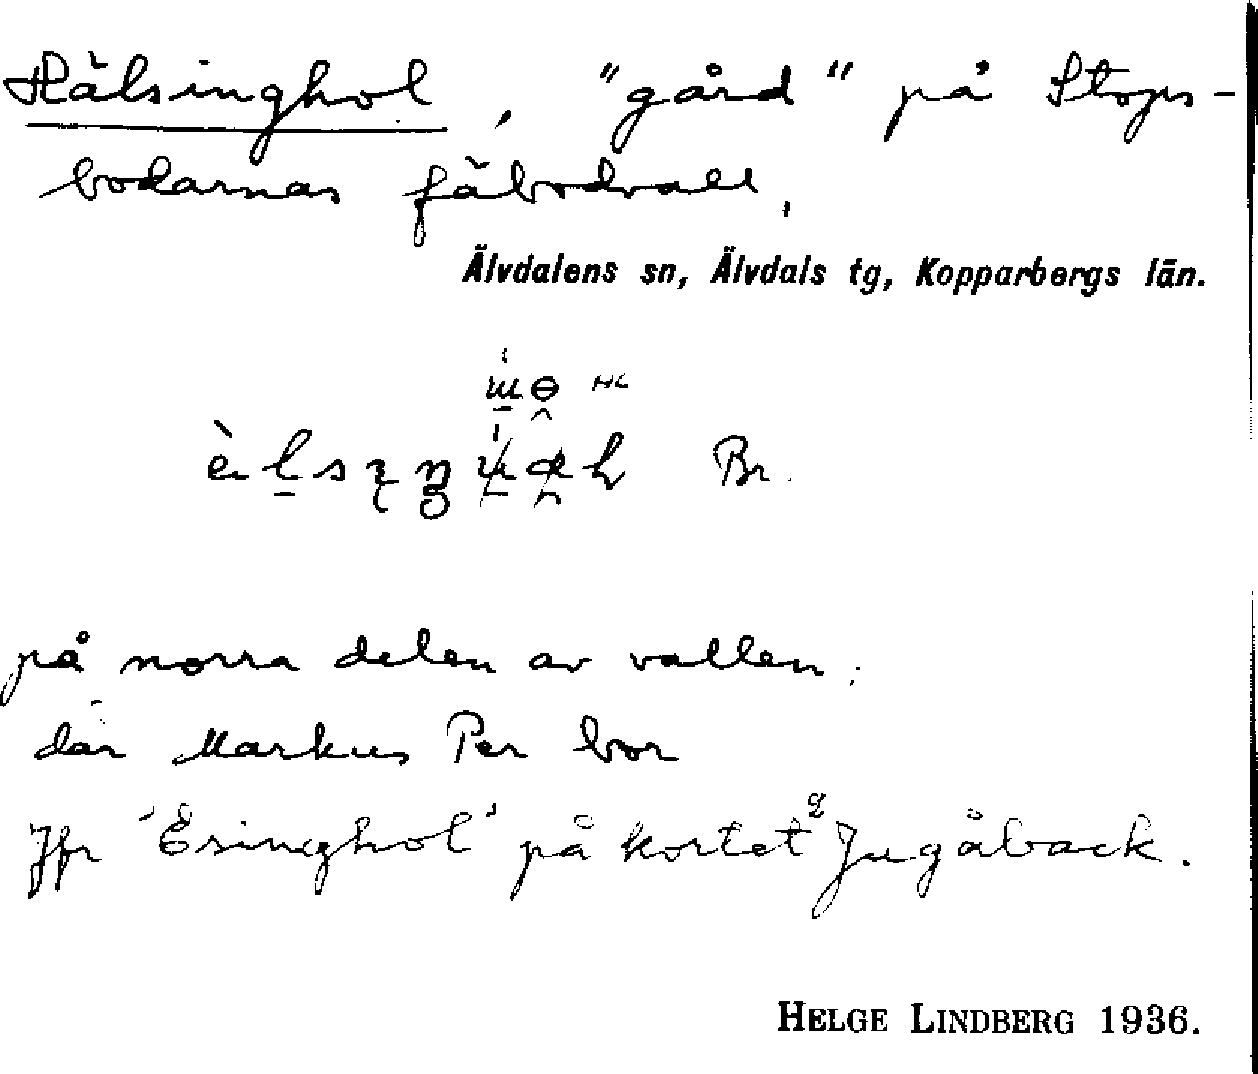 Hälsinghol, "gård" på Stops-
bodarnas fäbodvall,
Älvdalens sn, Älvdals tg, Kopparbergs län.
Br.
på norra delen av vallen.
där Markus Per bor
Jfr 'Esinghol' på kortet Jugåback.
HELGE LINDBERG 1936.